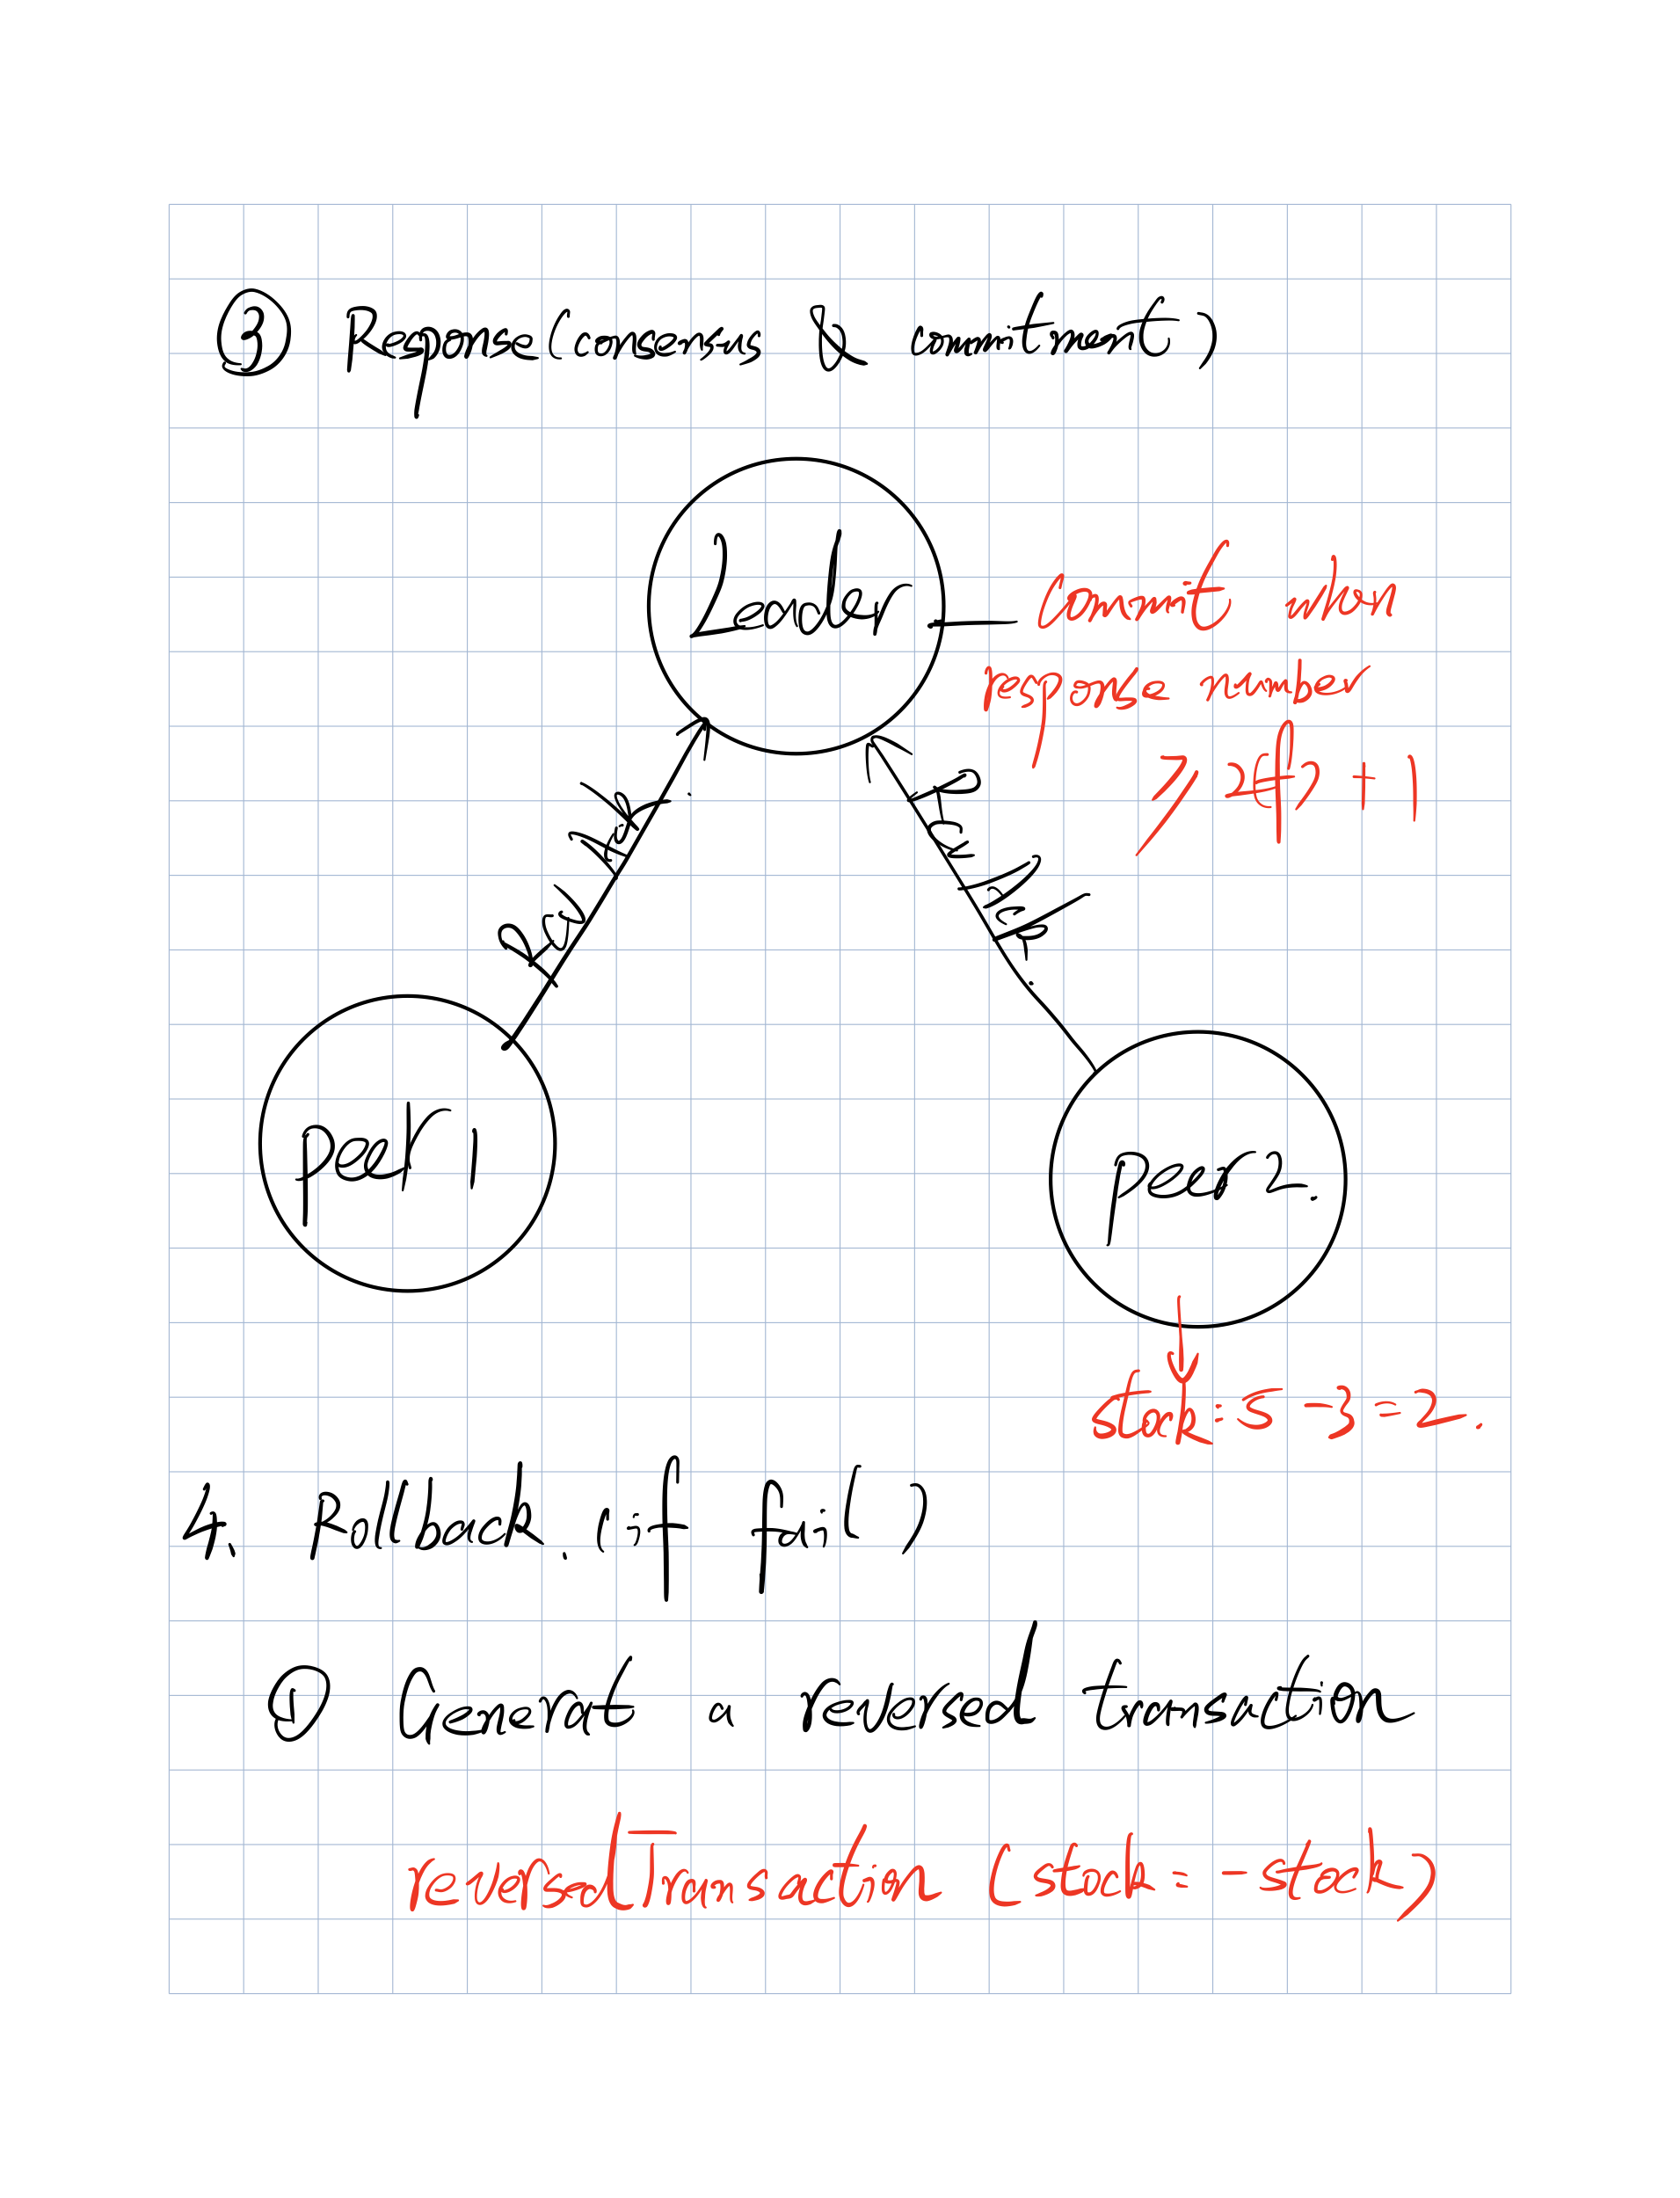 ③ Response(consensus & commitment)
Leader
commit when
response number
⩾ 2(f) + 1
peer 1
peer 2.
stock: 5 - 3 = 2.
4. Rollback. (if fail)
① Generat a reversed transaction
reversedTransaction (stock = - stock)